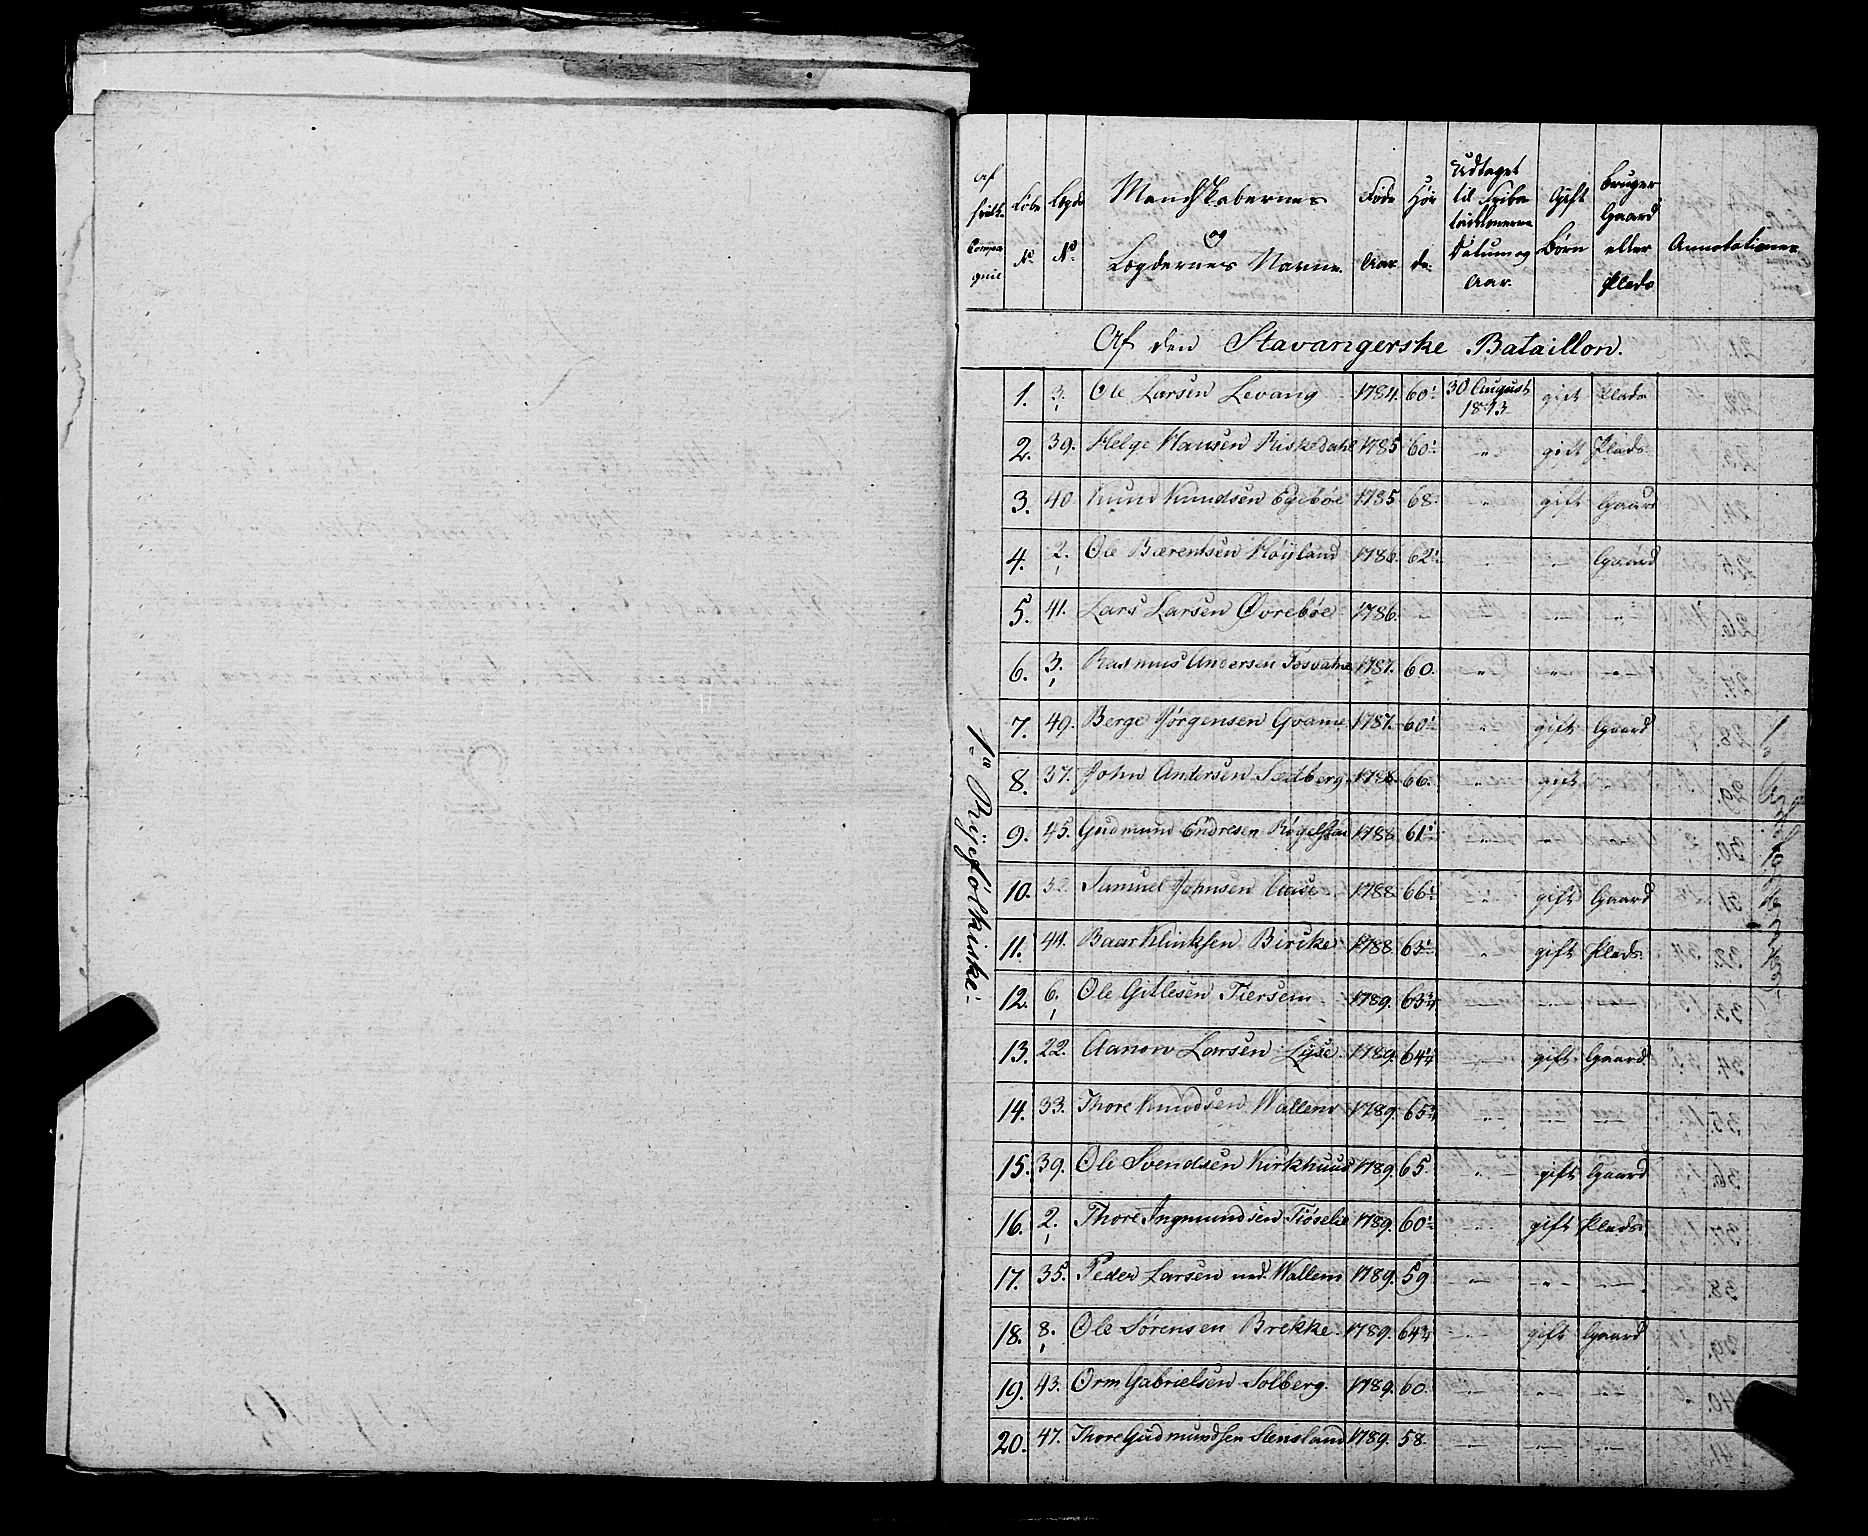 Af
Compa
gnie
Løbe
No
Lægds
No
Mandskabernes
og
Lægdernes Navne.
Føde
Aar
Høi
de
Udtaget
til Friba
taillonerne
Datum og
Aar.
Gift
Børn
Bruger
Gaard
eller
Plads
Annotationer
Af den Stavangerske Bataillon.
1. 3. 1 Ole Larsen Levang 1784. 60 30 August 1813 gift Plads
2. 39. Helge Hansen Riskedahl 1785 60 " gift Plads
3. 40 Knud Knudsen Egebøe 1785 68 " gift Gaard
4. 2. 1 Ole Bærentsen Høyland 1786. 62 " " Gaard
5. 41. Lars Larsen Øvrebøe 1786. " " " "
6. 3. 1 Rasmus Andersen Tosvatne 1787. 60. " " "
7. 49. Berge Jørgensen Qvame 1787. 60 " gift Gaard
8. 37. John Andersen Sedberg 1788 66. " gift "
9. 45. Gudmund Endresen Røgelstad 1788 61 " " "
10. 32. Samuel Johnsen Aase 1788 66 " gift Gaard
11. 44. Baar Klinksen Birke 1788. 63 " gift Plads
12. 6. 1 Ole Gitlesen Tiersem 1789. 63¾ " " "
13. 22. Aanon Larsen Lyse 1789. 64¼ " gift Gaard
14. 33. Thore Knudsen Wallem 1789. 65¾ " " "
15. 39. Ole Svendsen Kirkhuus 1789. 65. " gift Gaard
16. 2. 1 Thore Ingmundsen Tiøselie 1789. 60 " gift Plads
17. 35. Peder Larsen ned. Wallem 1789. 59 " " "
18. 8. 1 Ole Sørensen Brekke 1789. 64¾ " gift Gaard
19. 43. Orm Gabrielsen Solberg. 1789. 60 " " "
20. 47. Thore Gudmundsen Stensland 1789. 58. " " "
1ste Ryefølkinske